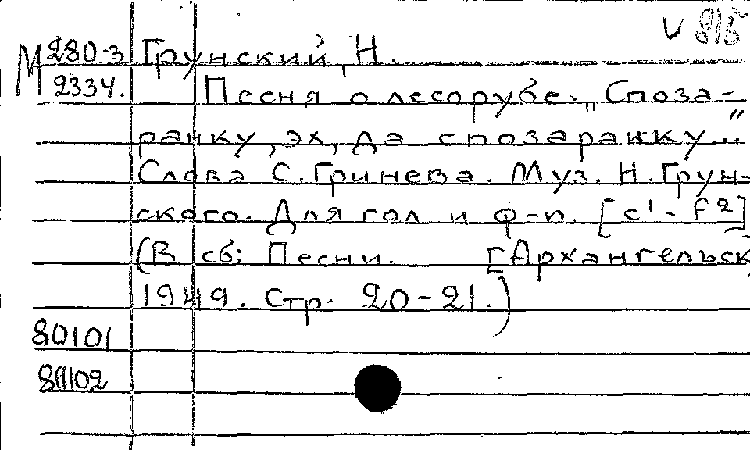 V 815
М 280-3 Грунский, Н.
2334. Песня о лесорубе. "Споза-
ранку, эх, да спозаранку..."
Слова С. Гринева. Муз. Н. Грун-
ского. Для гол и ф-п. [c¹-f²]
(В сб: Песни. [Архангельск
1949. Стр. 20-21.)
80101
80102